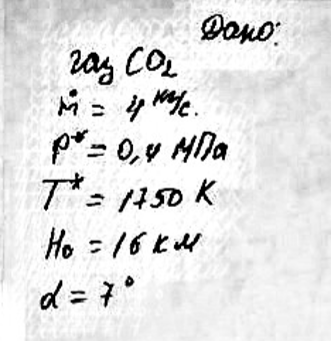 Дано:
газ CO₂
ṁ = 4 кг/с.
P* = 0,4 МПа
T* = 1750 К
H₀ = 16 км
α = 7°